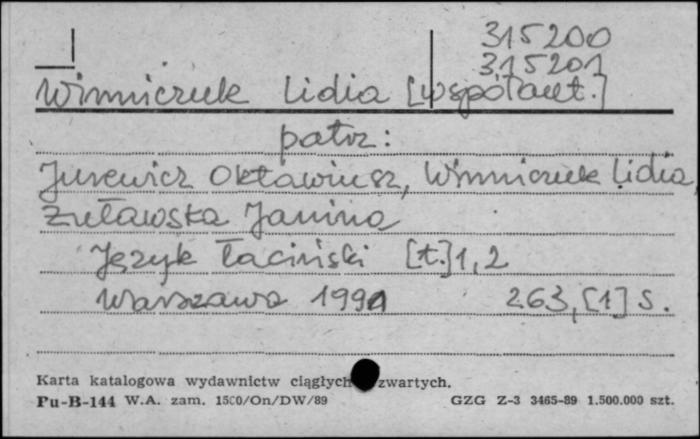 315200
315201
Winniczuk Lidia [współaut.]
patrz:
Jurewicz Oktawiusz, Winniczuk Lidia,
Żuławska Janina
Język łaciński [t.] 1, 2
Warszawa 1991 263, [1] s.
Karta katalogowa wydawnictw ciągłych zwartych.
Pu-B-144 W.A. zam. 1500/On/DW/89 GZG Z-3 3465-89 1.500.000 szt.